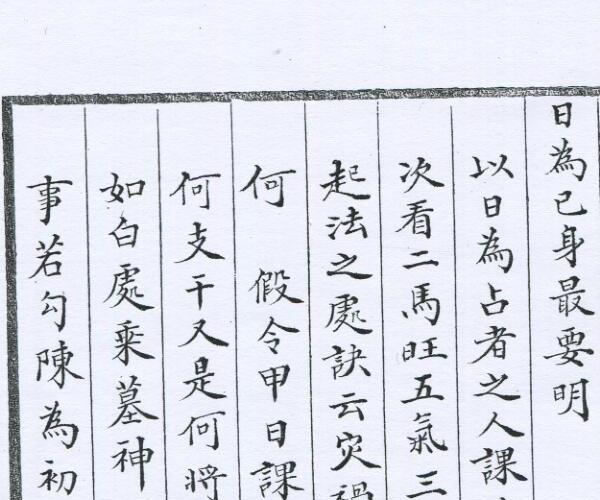 日為己身最要明
以日為占者之人課
次看二馬旺五氣三
起法之處訣云灾禍
何　假令甲日課
何支干又是何將
如白處乗墓神
事若勾陳為初